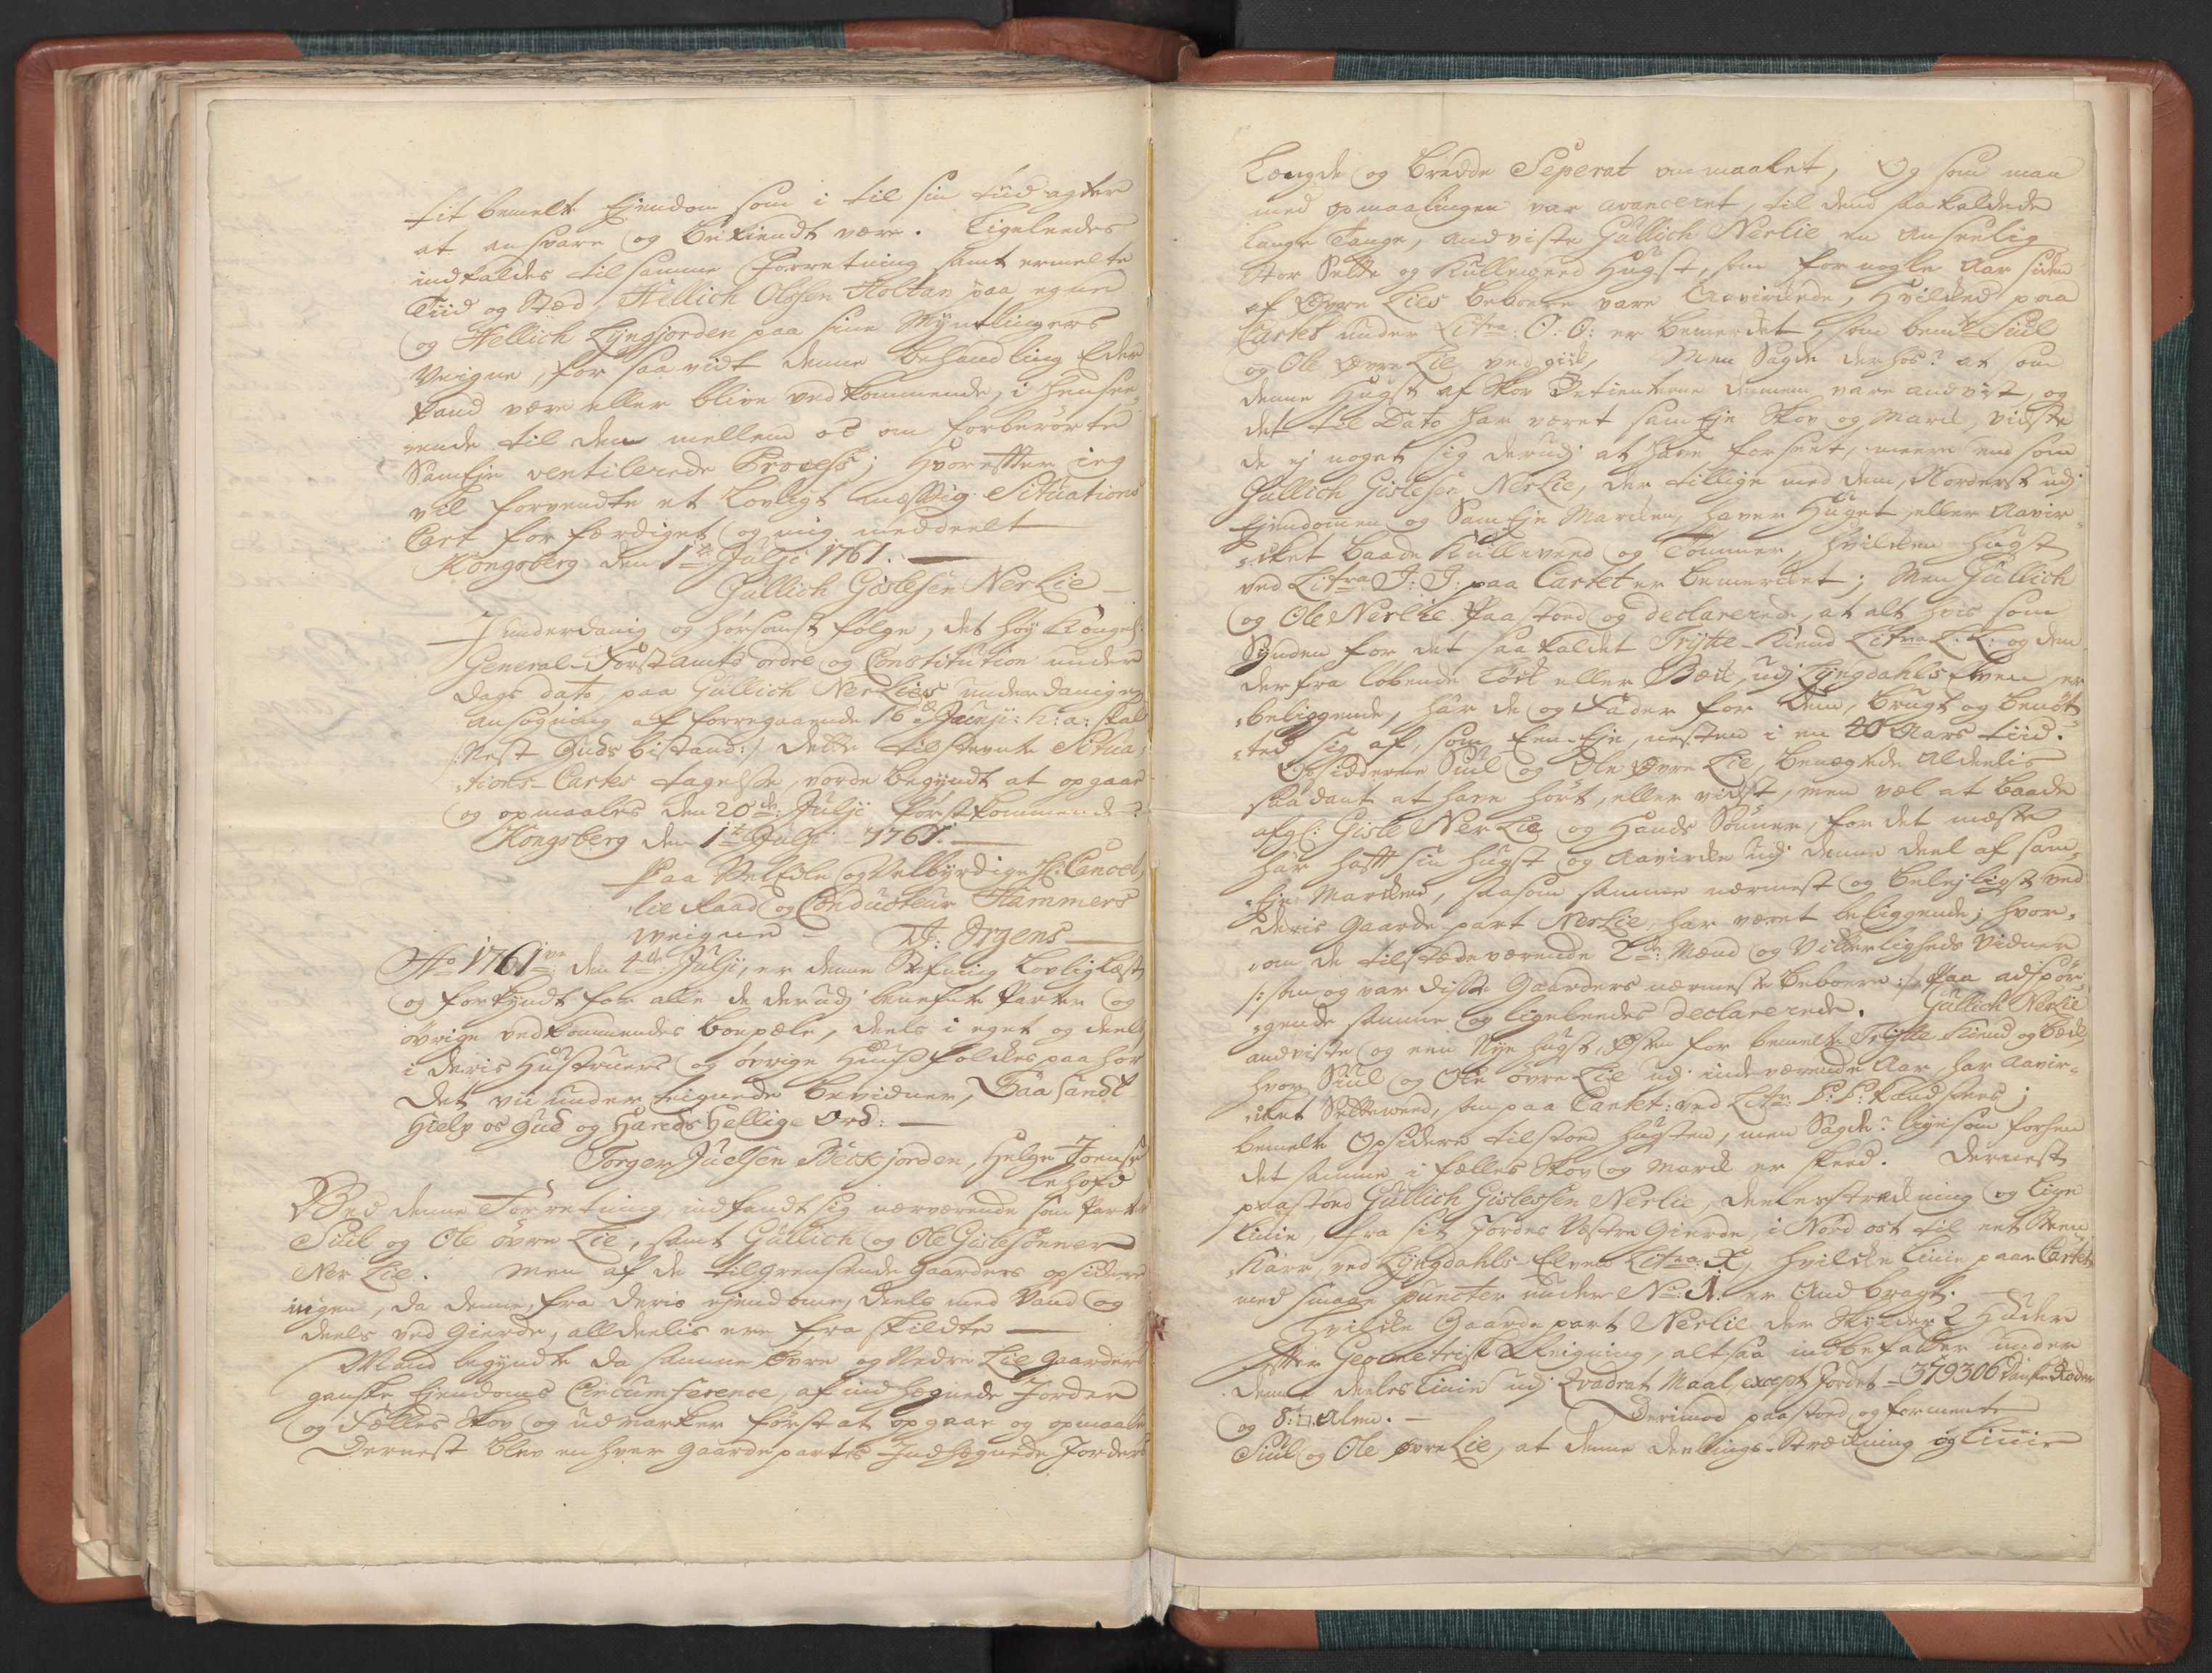 tit bemelte Ejendom som i til sin tiid agter
at ansvare og bekiendt være. Ligeleedes
indkaldes til samme Forretning samt ermelte
Tiid og Stæd, Hellich Olssen Holtan paa egne
og Hellich Lyngjorden paa sine Myntlingers
Veigne, for saavidt denne behandling Eder
kand være eller blive ved kommende, i Henseen
ende til den mellem os om forberørte
SamEje ventilerede Process; Hvorefter jeg
vil forvendte et Lovligt mæssig Situations
Cart for færdiget og mig meddeelt
Kongsberg den 1te Julji 1761.
Gullich Gislesen NerLie
J underdanig og hørsomst følge, det høy Kongel:
General-Forstamts ordre og Constitution under
Dags dato, paa Gullich NerLies underdanigen
ansøgning af forregaaende 16de Junji: h: a: skal
/: Nest Guds bistand :/ dette tilstevnte Situa-
tions-Cartes tagelsse, vorde begyndt at opgaae
og opmaales den 20de: Julji førstkommende?
Kongsberg den 1te Julji 1761.
Paa VelEdle og Velbyrdige Hr: Cancel-
lie Raad og Conducteur Hammers
weigne D: Ørgens
Ao 1761 den 4de Julji, er denne Stefning Lovlig Læst
og forkyndt for alle de derudj benefnte Parter og
øvrige vedkommendes boepæle, deels i eget og deels
i deris Hustruers og øvrige Huusfolkes paahør
Det vii under teignede bevidner, Saa sandt
Hielp os Gud og Hands Hellige Ord:
Torger Juelsen Beckjorden, Helge Joensen
Lehofd
Ved denne Forretning indfandt sig nærværende som Parter
Siul og Ole øvre Lie, samt Gullich og Ole Gislesønner
Ner Lie. Men af de tilgrensende Gaarders opsiddere
ingen, da denne, fra deris ejendomme, deels med Vand og
deels ved Gierde, alldeelis ere fra skildte
Mand begyndte da samme Øvre og Nedre Lie gaarders
gandske Ejendoms Circumference, af indhegnede Jorder
og Fælles Skov og udmarker først at opgaae og opmaale
Dernest blev en hver gaardeparts Indhegnede Jorders
Længde og bredde Seperat om maalet, Og som man
med opmaalingen var avanceret, til dend saa kaldede
lange Tange, andviste Gullich Nerlie en anseelig
Stor Sette og Kulleveed Hugst, som for nogle Aar siden
af Øvre Lies beboere vare aavirkede, Hvilked paa
Cartet under Litra: O: O: er bemerket, som bemte Siul
og Ole Øvre Lie ved gick, Men Sagde derhos? at om
denne Hugst af Skov Betienterne dennem vare andvist, og
det til Dato har været samEje Skov og Marck, vidste
de ej noget sig derudj at have forseet, meere end som
Gullich Gislesen NerLie, der tillige med dem, Norderst udj
Ejendomen og SamEje Marcken, haver Huget eller Aavir-
cket baade Kulleveed og Tømmer, hvilken Hugst
ved Litra J: J: paa Cartet er bemercket; Men Gullich
og Ole Nerlie Paastoed og declarerede, at alt hvis som
Synden for det saa kaldet Trytte-Kiend Litra L: L: og den
derfra løbende Løck eller Beck, udj Lyngdahls Elven er
beliggende, har de og Fader for Dem, brugt og benøt-
ted sig af, som Een-Eje, nesten i en 20 Aars tiid.
Opsidderne Siul og Ole Øvre Lie, benegtede aldeelis
saadant at have hørt, eller vidst, men vel at baade
afg: Gisle NerLie og Hands Sønner, for det mæste
har haft sin Hugst og Aavircke udj denne deel af sam-
Eje Marcken, saasom samme nærmest og belejligst ved
deris Gaarde part NerLie, har været beliggende; hvor-
om de tilstædeværende 2de: Mænd og Vitterligheds Vidner
/: som og var disse Gaarders nærmeste beboere :/ Paa adspør-
gende samme og ligeleedes declarerede. Gullich Nerlie
andviste og een Nye Hugst Østen for bemelte Trytte-Kiend og beck,
hvor Siul og Ole øvre Lie udj indeværende Aar, har Aavir-
cket Setteveed, som paa Cartet: ved Litr: P: P: kand sees;
bemelte Opsiddere tilstoed Hugsten, men Sagde? ligesom forhen
det samme i fælles Skov og Marck er skeed. Dernest
paastoed Gullich Gislessen Nerlie, deelestreckning og Lige
Linie, fra sit Jordes Vestre Gierde, i Nord ost til eet Steen
Kiær ved Lyngdahls Elven Litra: X, hvilcke Linie paa Cartet
med smaae puncter under No: 1: er Andbragt.
Hvilcke Gaarde part Nerlie der Skylder 2 Huder
Efter Geometrisk Udreigning, altsaa indbefatter under
denne deeles Linie udj Qvadrat Maal, except Jordet - 379306 Danske Roder
og 8: □ Alen. - Derimod paastoed og formente
Siul og Ole Øvre Lie, at denne deelings-Strækning og Linie